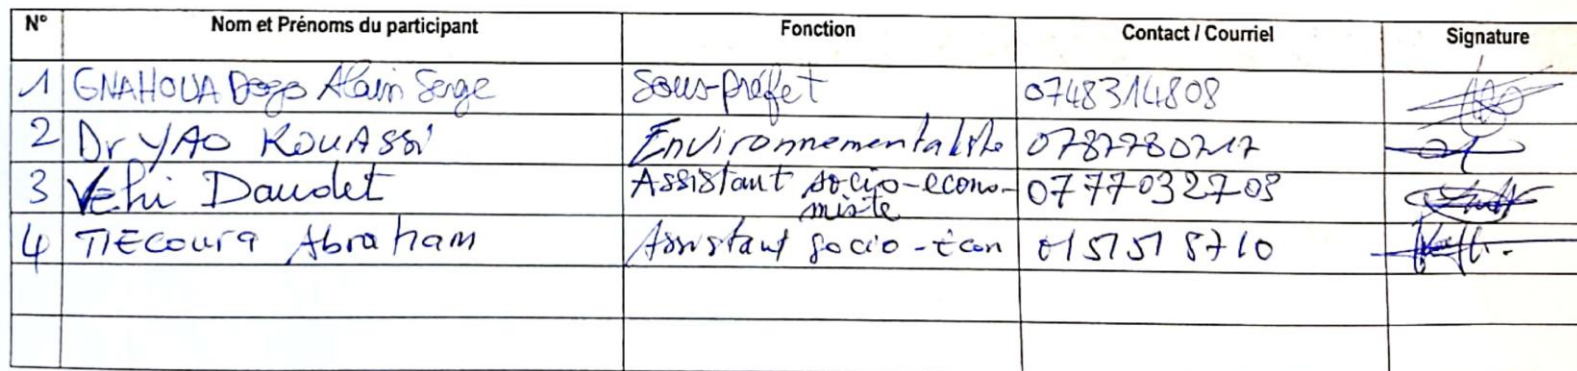 N° Nom et Prénoms du participant Fonction Contact / Courriel Signature
1 GNAHOUA Dogo Alain Serge Sous-préfet 0748314808
2 Dr YAO KOUASSI Environnementaliste 0787780217
3 Vehi Daudet Assistant socio-econo-miste 0777032703
4 TIECOURA Abraham Assistant socio-écon 0151518710